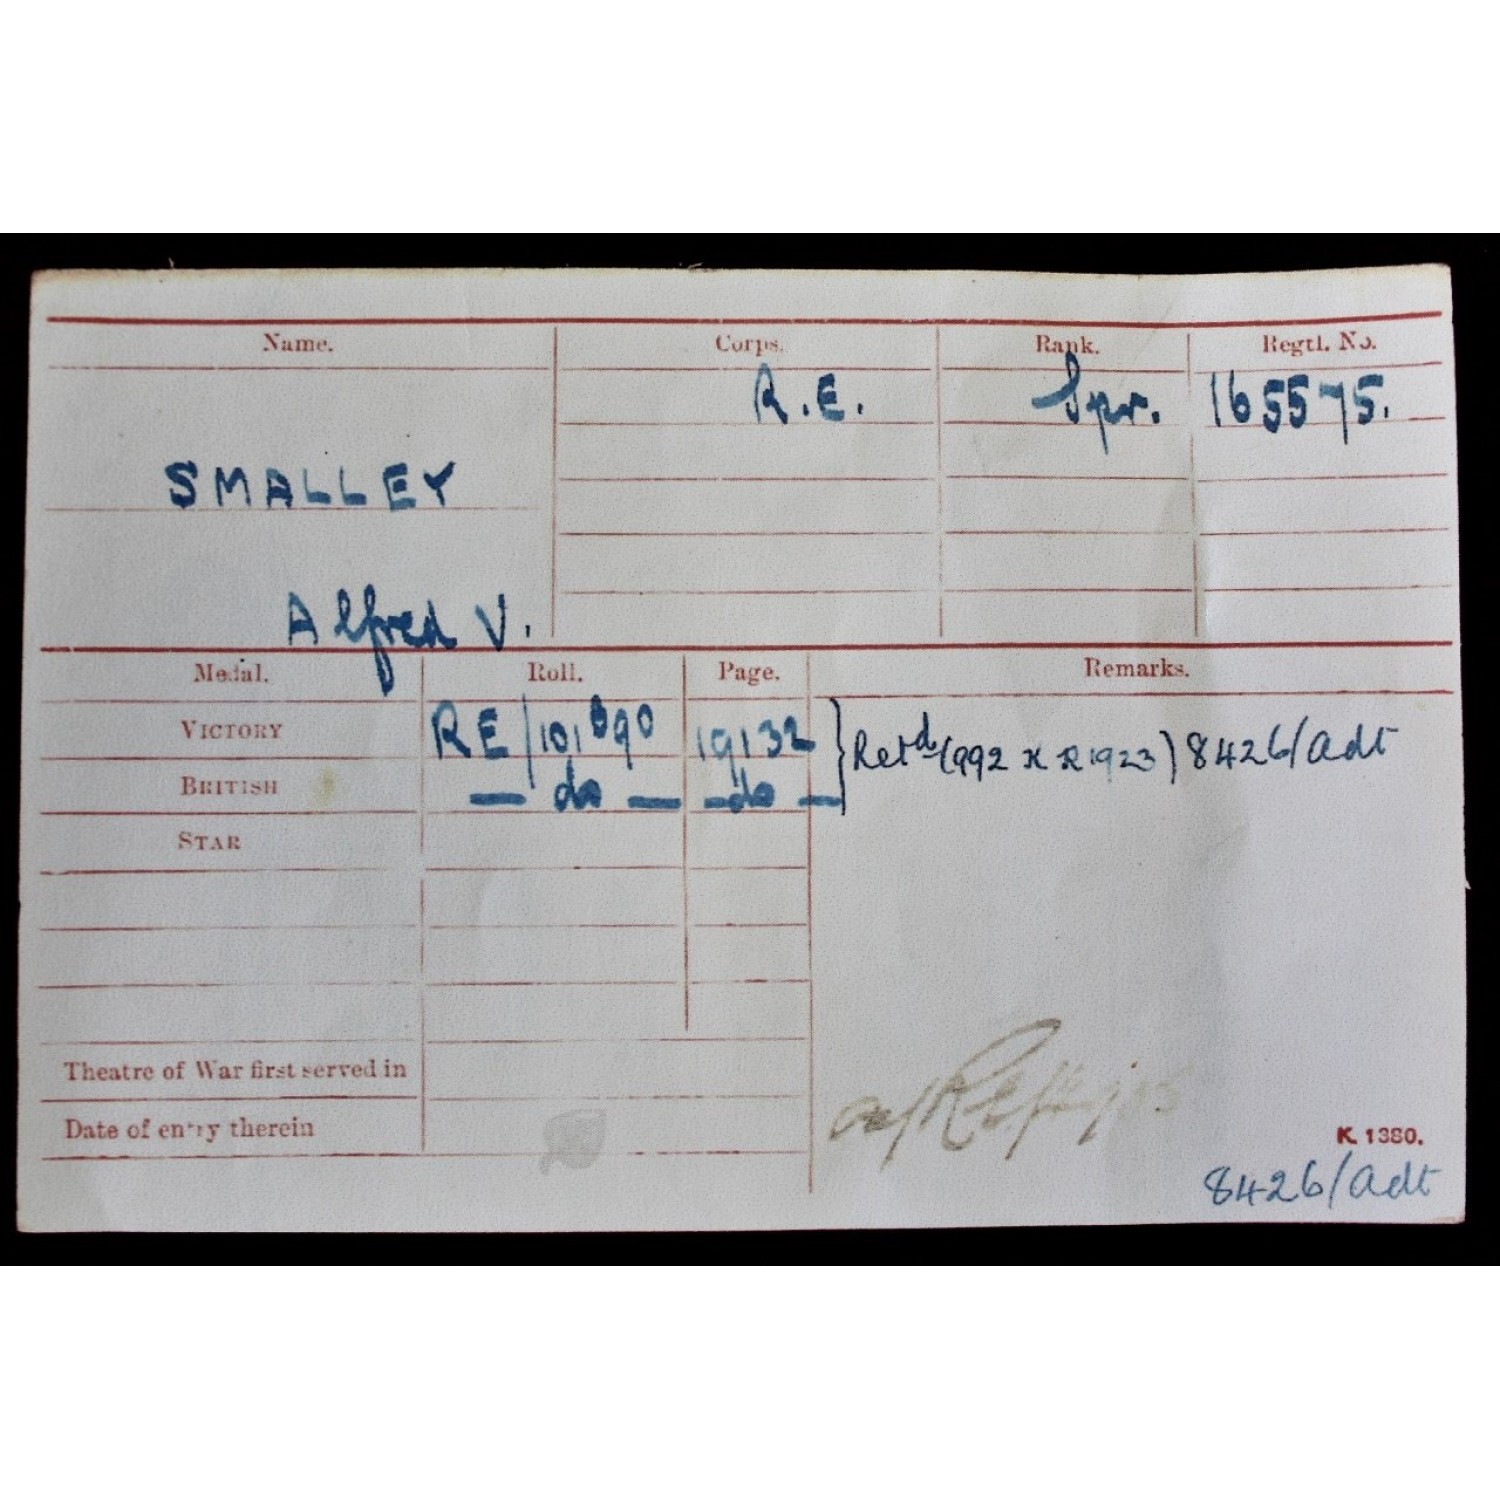 Name. Corps. Rank. Regtl. No.
R.E. Spr. 165575.
SMALLEY
Alfred V.
Medal. Roll. Page. Remarks.
VICTORY RE/101 B90 19132 } Retd (992 K R 1923) 8426/Adt
BRITISH — do — — do —
STAR
Theatre of War first served in
Date of entry therein
K. 1380.
8426/Adt